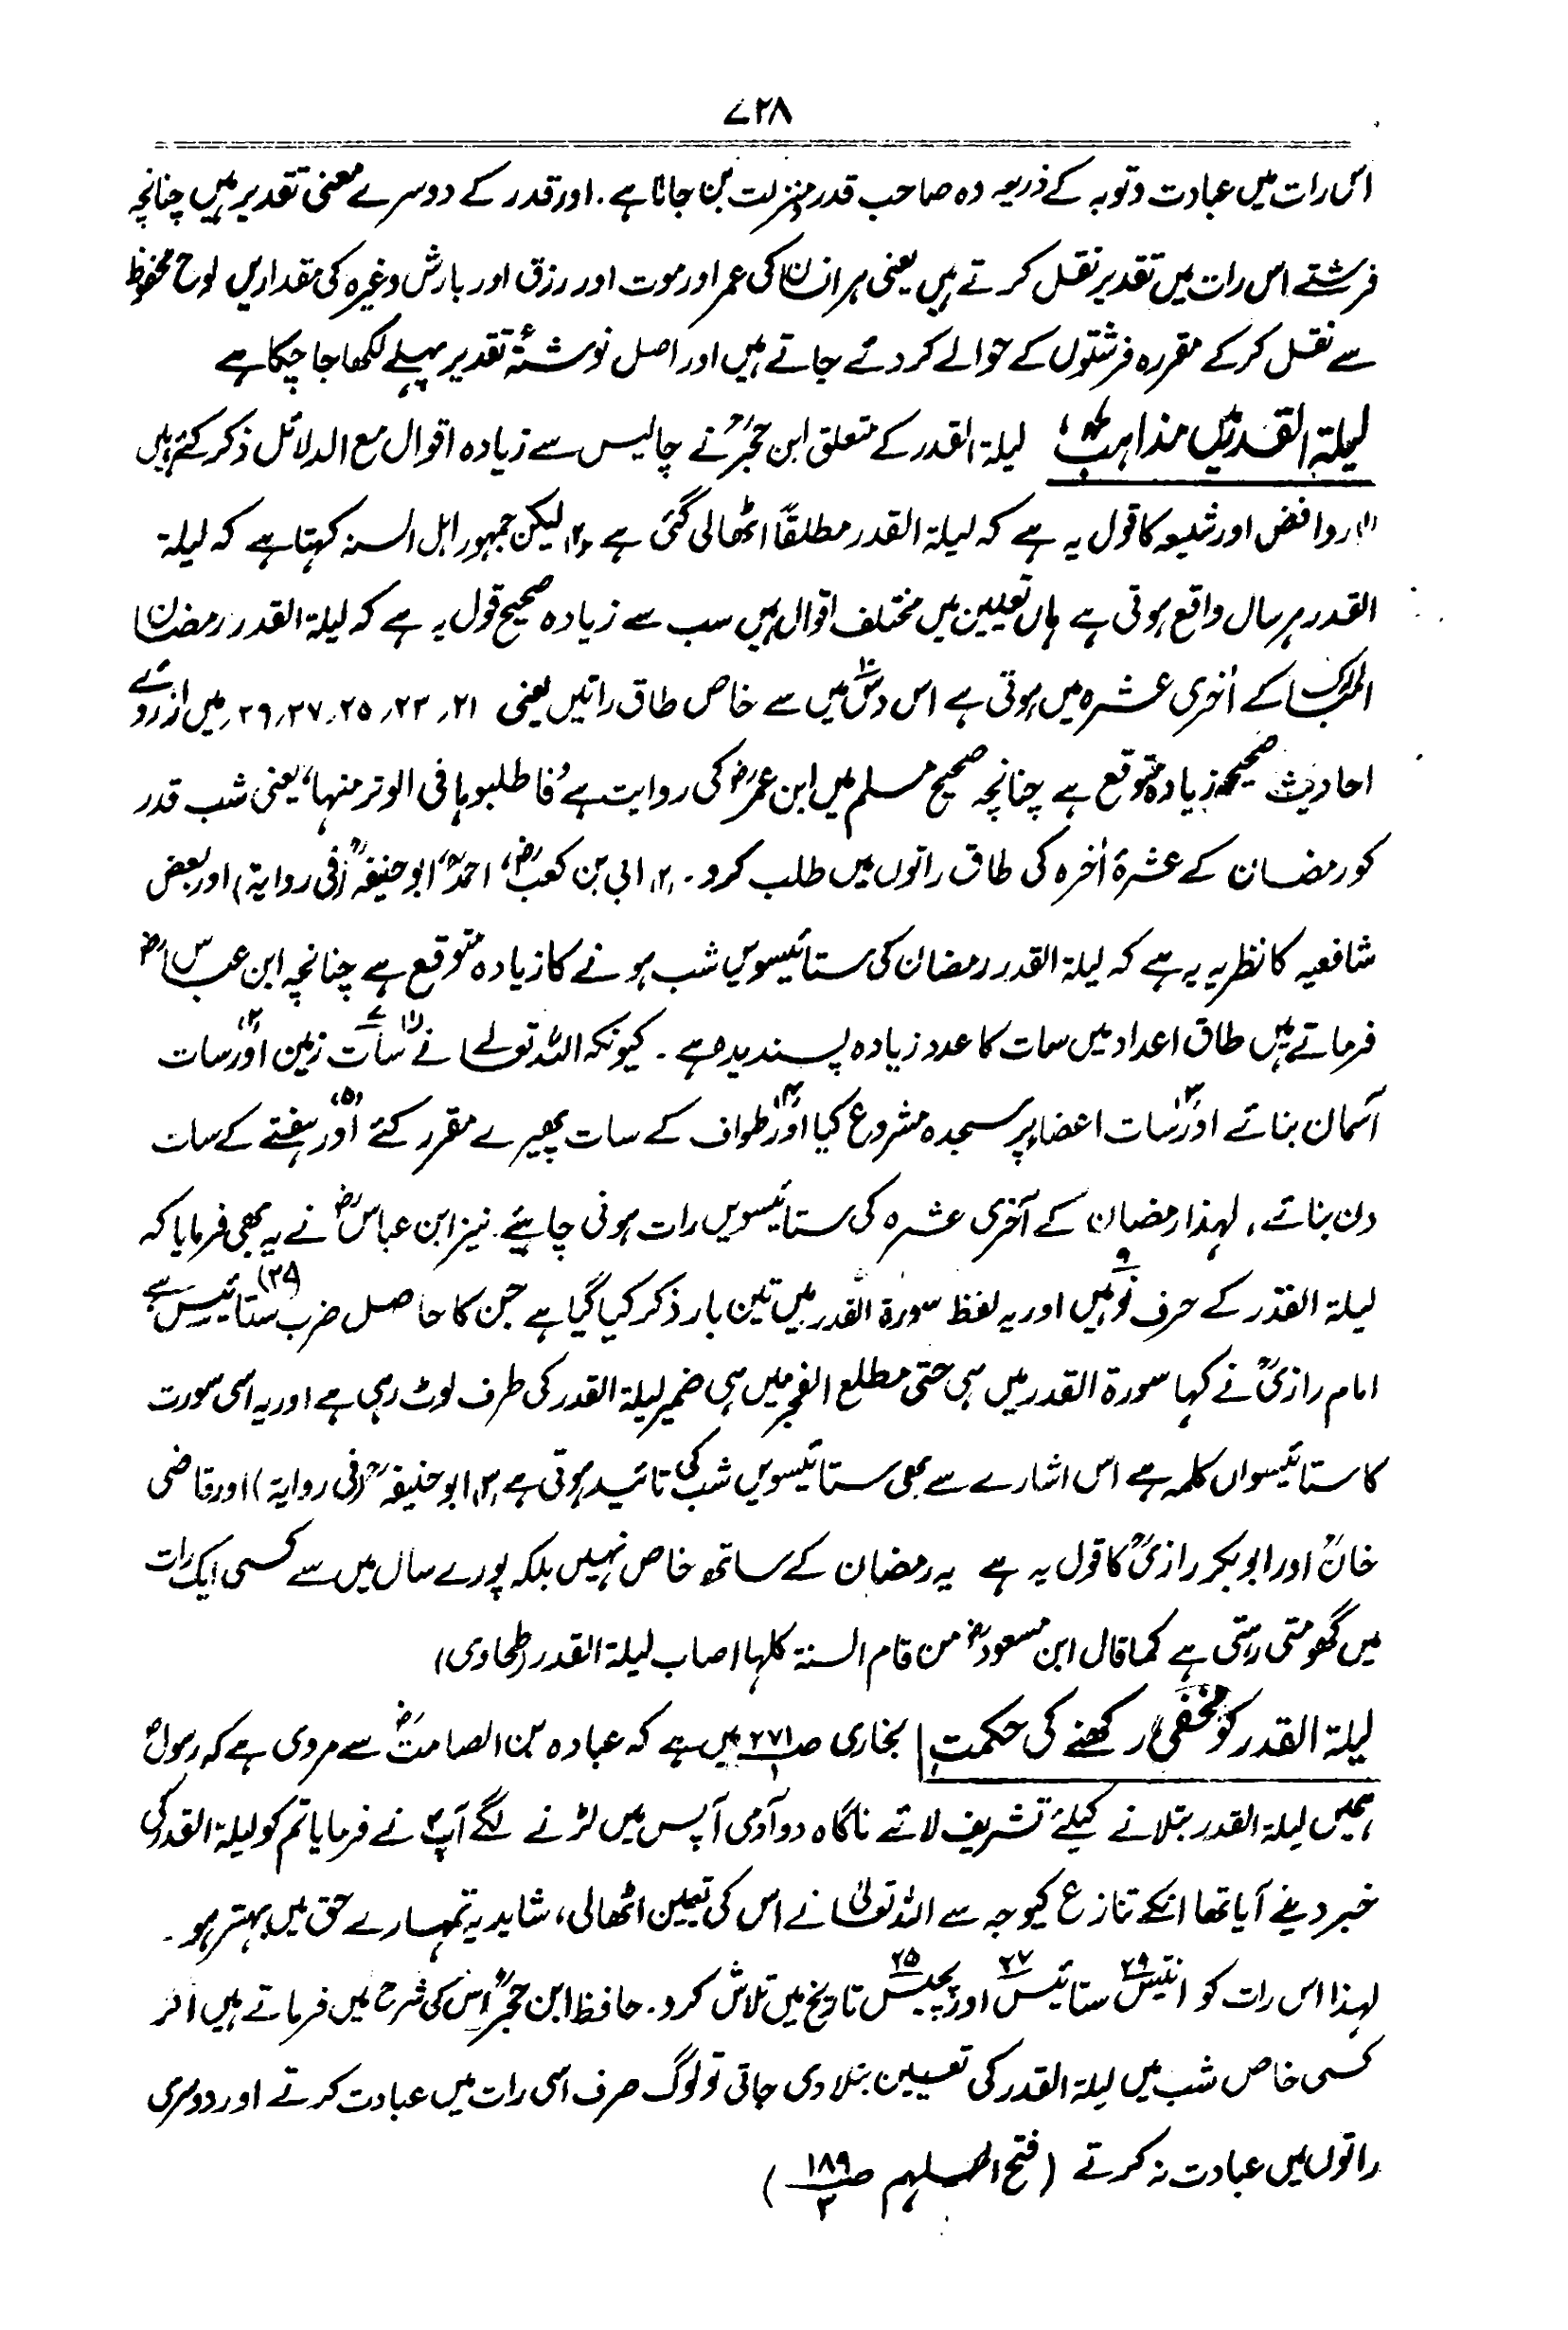 ۷۲۸
اس رات میں عبادت وتوبہ کے ذریعہ وہ صاحب قدر ومنزلت بن جاتا ہے. اور قدر کے دوسرے معنی تقدیر ہیں چنانچہ
فرشتے اس رات میں تقدیر نقل کرتے ہیں یعنی ہر انسان کی عمر اور موت اور رزق اور بارش وغیرہ کی مقداریں لوح محفوظ
سے نقل کرکے مقررہ فرشتوں کے حوالے کردئے جاتے ہیں اور اصل نوشتۂ تقدیر پہلے لکھا جا چکا ہے
لیلۃ القدر میں مذاہب لیلۃ القدر کے متعلق ابن حجرؒ نے چالیس سے زیادہ اقوال مع الدلائل ذکر کئے ہیں
(۱) روافض اور شیعہ کا قول یہ ہے کہ لیلۃ القدر مطلقًا اٹھالی گئی ہے (۲) لیکن جمہور اہل السنہ کہتا ہے کہ لیلۃ
القدر ہر سال واقع ہوتی ہے ہاں تعیین میں مختلف اقوال ہیں سب سے زیادہ صحیح قول یہ ہے کہ لیلۃ القدر رمضان
المبارک کے اٰخری عشرہ میں ہوتی ہے اس دس۱۰ میں سے خاص طاق راتیں یعنی ۲۱, ۲۳, ۲۵, ۲۷, ۲۹, میں ازروئے
احادیث صحیحہ زیادہ متوقع ہے چنانچہ صحیح مسلم میں ابن عمرؓ کی روایت ہے ”فاطلبوہا فی الوتر منہا“ یعنی شب قدر
کو رمضان کے عشرۂ اٰخرہ کی طاق راتوں میں طلب کرو۔ (۲) ابی بن کعبؓ، احمدؒ، ابوحنیفہؒ (فی روایۃ) اور بعض
شافعیہ کا نظریہ یہ ہے کہ لیلۃ القدر رمضان کی ستائیسویں شب ہونے کا زیادہ متوقع ہے چنانچہ ابن عباسؓ
فرماتے ہیں طاق اعداد میں سات کا عدد زیادہ پسندیدہ ہے۔ کیونکہ اللہ تعالےٰ نے (۱) سات۷ زمین اور (۲) سات
آسمان بنائے اور (۳) سات اعضاء پر سجدہ مشروع کیا اور (۴) طواف کے سات پھیرے مقرر کئے اور (۵) ہفتے کے سات
دن بنائے، لہذا رمضان کے آخری عشرہ کی ستائیسویں رات ہونی چاہیئے. نیز ابن عباسؓ نے یہ بھی فرمایا کہ
لیلۃ القدر کے حرف نو۹ ہیں اور یہ لفظ سورۃ القدر میں تین بار ذکر کیا گیا ہے جن کا حاصل ضرب ستائیس (۲۷) ہے
امام رازیؒ نے کہا سورۃ القدر میں ہی حتی مطلع الفجر میں ہی ضمیر لیلۃ القدر کی طرف لوٹ رہی ہے اور یہ اسی سورت
کا ستائیسواں کلمہ ہے اس اشارے سے بھی ستائیسویں شب کی تائید ہوتی ہے (۳) ابوحنیفہؒ (فی روایۃ) اور قاضی
خانؒ اور ابوبکر رازیؒ کا قول یہ ہے یہ رمضان کے ساتھ خاص نہیں بلکہ پورے سال میں سے کسی ایک رات
میں گھومتی رہتی ہے کما قال ابن مسعودؓ من قام السنۃ کلہا اصاب لیلۃ القدر (طحاوی)
لیلۃ القدر کو مخفی رکھنے کی حکمت بخاری صـ ۲۷۱/۱ میں ہے کہ عبادہ بن الصامتؓ سے مروی ہے کہ رسولؐ
ہمیں لیلۃ القدر بتلانے کیلئے تشریف لائے ناگاہ دو آدمی آپس میں لڑنے لگے آپؐ نے فرمایا تم کو لیلۃ القدر کی
خبر دینے آیا تھا انکے تنازع کیوجہ سے اللہ تعالیٰ نے اس کی تعیین اٹھالی، شاید یہ تمہارے حق میں بہتر ہو۔
لہذا اس رات کو انتیس۲۹ ستائیس۲۷ اور پچیس۲۵ تاریخ میں تلاش کرو. حافظ ابن حجرؒ اس کی شرح میں فرماتے ہیں اگر
کسی خاص شب میں لیلۃ القدر کی تعیین بتلادی جاتی تو لوگ صرف اسی رات میں عبادت کرتے اور دوسری
راتوں میں عبادت نہ کرتے (فتح الملہم صـ ۱۸۹/۳)